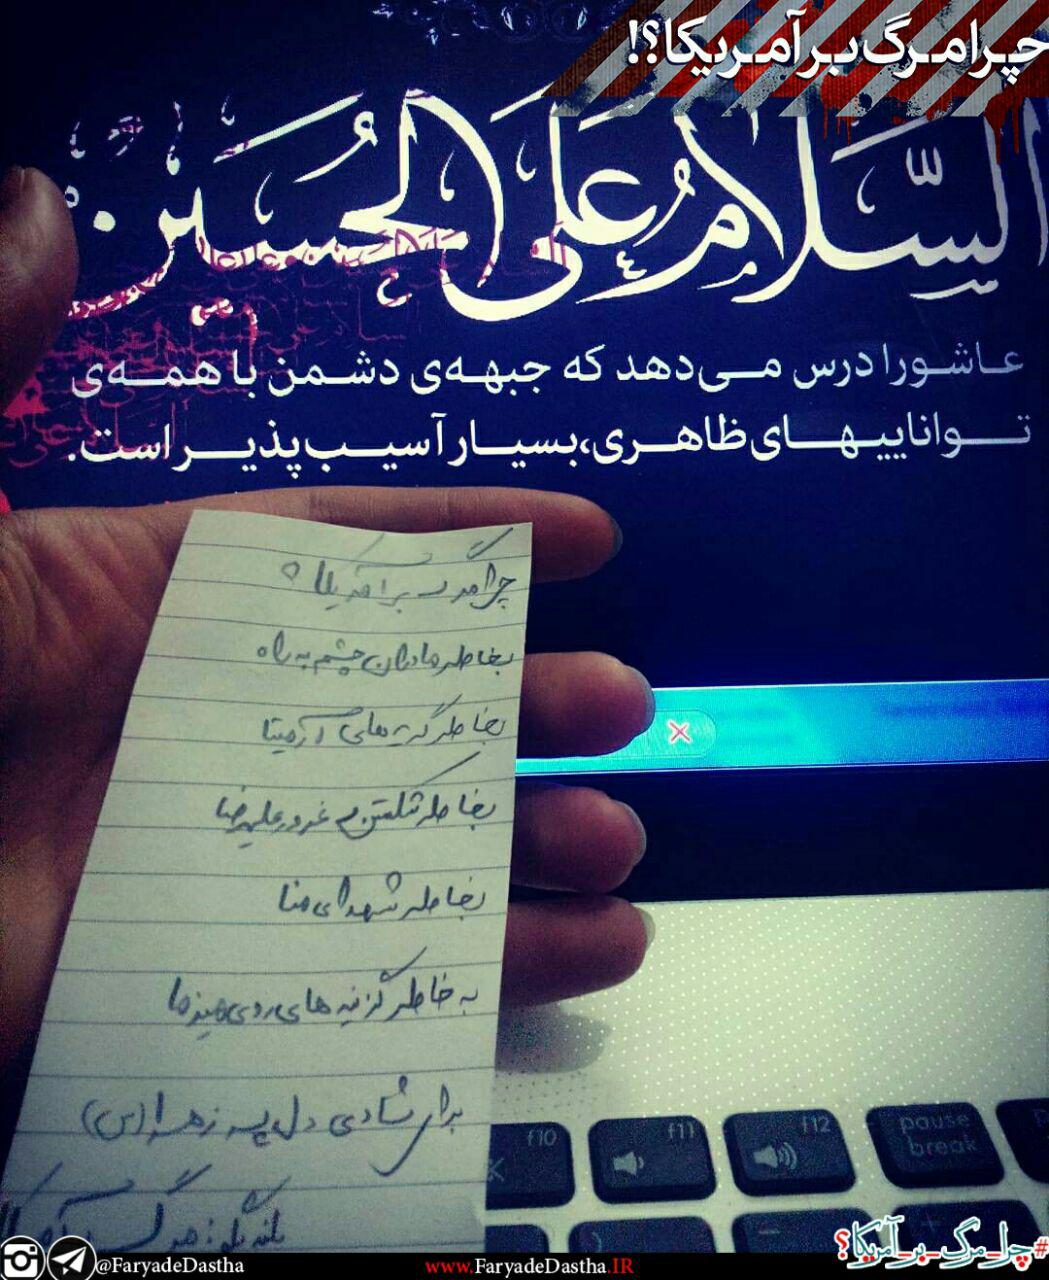 چرا مرگ بر آمریکا؟!
السَّلامُ عَلَی الحُسَین
عاشورا درس می‌دهد که جبهه‌ی دشمن با همه‌ی
تواناییهای ظاهری، بسیار آسیب پذیر است.
چرا مرگ بر آمریکا ؟
بخاطر مادران چشم به راه
بخاطر گریه های آرمیتا
بخاطر شکستن غرور علیرضا
بخاطر شهدای منا
به خاطر گزینه های روی میز ما
برای شادی دل پسر زهرا(س)
بلند بگو: مرگ بر آمریکا
f10 f11 f12 pause break
#چرا_مرگ_بر_آمریکا؟
@FaryadeDastha
www.FaryadeDastha.IR